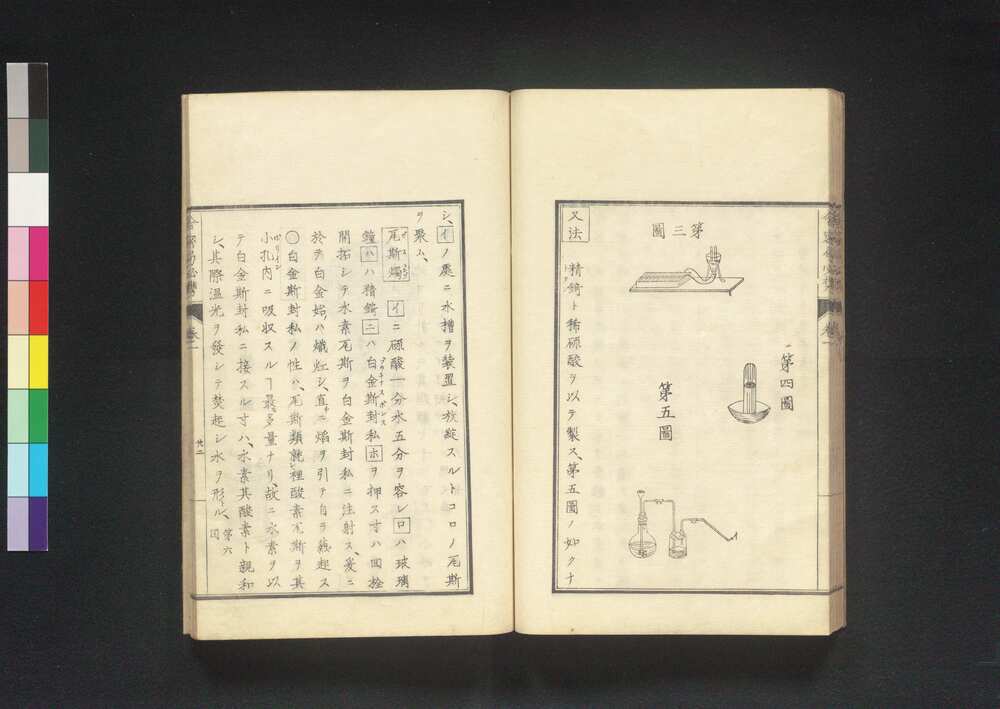 第四圖
第三圖
第五圖
又法 精錡ト稀硫酸ヲ以テ製ス、第五圖ノ如クナ
シ、イノ處ニ水槽ヲ装置シ、放淀スルトコロノ瓦斯
ヲ聚ム、
瓦斯燭 イニ硫酸一分水五分ヲ容レロハ玻璃
鐘ハハ精錡ニハ白金斯封私ホヲ押ス寸ハ囘拴
開拓シテ水素瓦斯ヲ白金斯封私ニ注射ス、爰ニ
於テ白金始ハ熾紅シ、直ニ焔ヲ引テ自ラ蕤起ス
〇白金斯封私ノ性ハ、瓦斯類就裡酸素瓦斯ヲ其
小孔内ニ吸収スルヿ最多量ナリ、故ニ水素ヲ以
テ白金斯封私ニ接スル寸ハ、水素其酸素ト親和
シ、其際温光ヲ發シテ焚起シ水ヲ形ル、第六
図
廿二